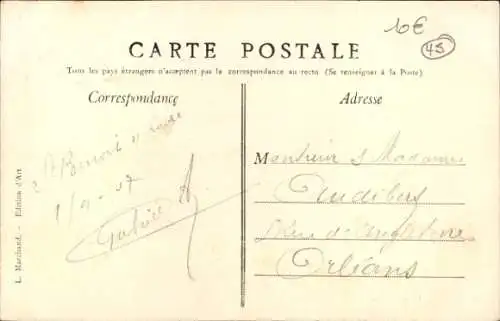 10€
45
CARTE POSTALE
Tous les pays étrangers n'acceptent pas la correspondance au recto (Se renseigner à la Poste)
Correspondance
Adresse
St Benoit s/ Loire
1/9-07
L. Marchand. - Edition d'Art
Monsieur & Madame
Audibert
Rue d'Angleterre
Orléans